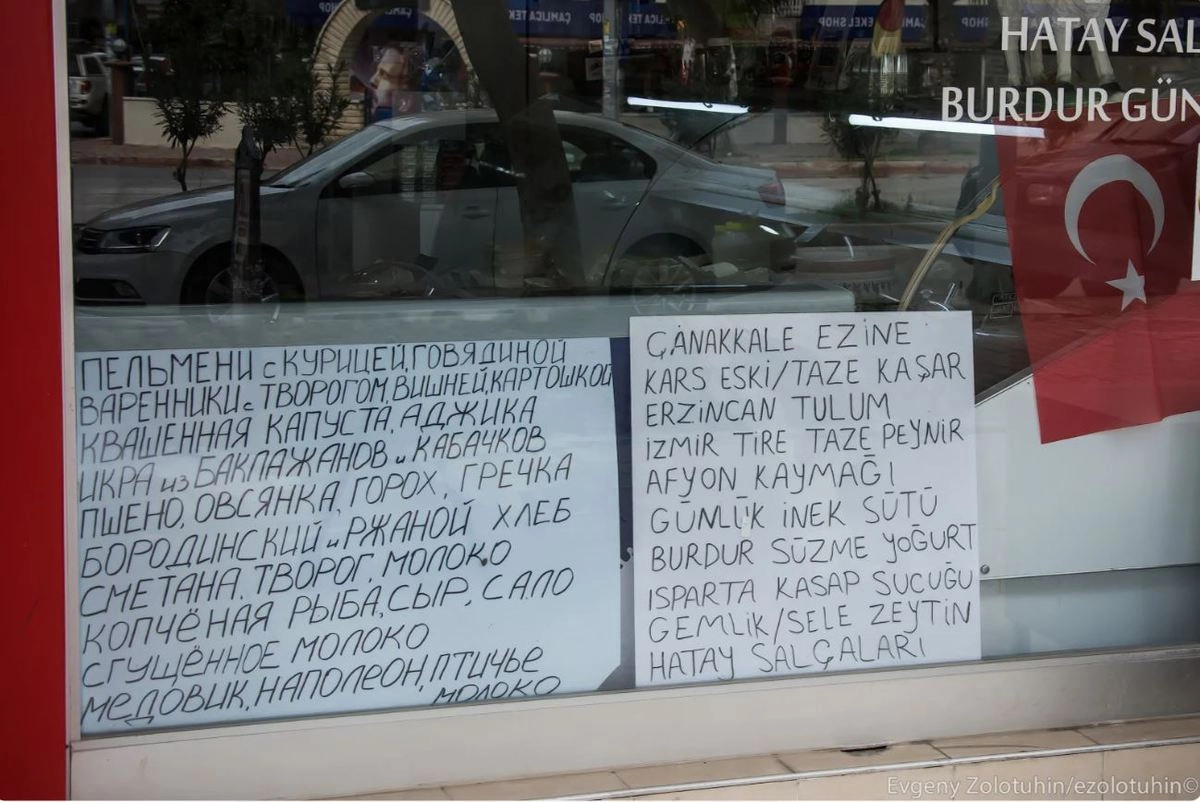 ÇAMLICA TEK
ÇAMLICA TEKEL SHOP
HATAY SAL
BURDUR GÜN
ПЕЛЬМЕНИ с КУРИЦЕЙ, ГОВЯДИНОЙ
ВАРЕННИКИ с ТВОРОГОМ, ВИШНЕЙ, КАРТОШКОЙ
КВАШЕННАЯ КАПУСТА, АДЖИКА
ИКРА из БАКЛАЖАНОВ и КАБАЧКОВ
ПШЕНО, ОВСЯНКА, ГОРОХ, ГРЕЧКА
БОРОДИНСКИЙ и РЖАНОЙ ХЛЕБ
СМЕТАНА, ТВОРОГ, МОЛОКО
КОПЧЁНАЯ РЫБА, СЫР, САЛО
СГУЩЁННОЕ МОЛОКО
МЕДОВИК, НАПОЛЕОН, ПТИЧЬЕ
МОЛОКО
ÇANAKKALE EZİNE
KARS ESKİ/TAZE KAŞAR
ERZİNCAN TULUM
İZMİR TİRE TAZE PEYNİR
AFYON KAYMAĞI
GÜNLÜK İNEK SÜTÜ
BURDUR SÜZME YOĞURT
ISPARTA KASAP SUCUĞU
GEMLİK/SELE ZEYTİN
HATAY SALÇALARI
Evgeny Zolotuhin/ezolotuhin©